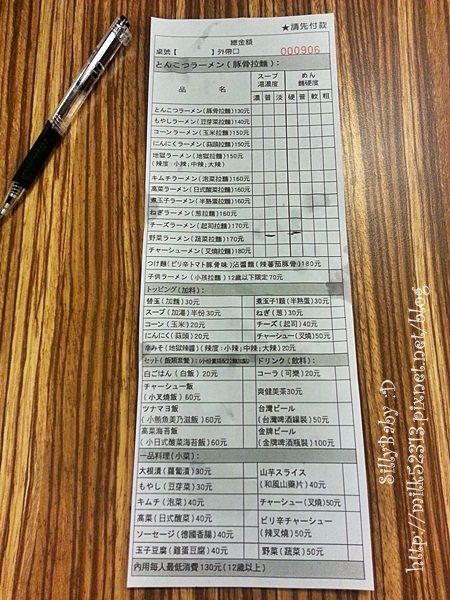 ★請先付款
總金額
桌號【　　】外帶口
000906
とんこつラーメン(豚骨拉麵):
品　名
スープ
湯濃度
めん
麵硬度
濃 普 淡 硬 普 軟 粗
とんこつラーメン(豚骨拉麵)130元
もやしラーメン(豆芽菜拉麵)140元
コーンラーメン(玉米拉麵)150元
にんにくラーメン(蒜頭拉麵)150元
地獄ラーメン(地獄拉麵)150元
(辣度:小辣;中辣;大辣)
キムチラーメン(泡菜拉麵)160元
高菜ラーメン(日式酸菜拉麵)160元
煮玉子ラーメン(半熟蛋拉麵)160元
ねぎラーメン(葱拉麵)160元
チーズラーメン(起司拉麵)170元
野菜ラーメン(蔬菜拉麵)170元
チャーシューメン(叉燒拉麵)180元
つけ麵(ピリ辛トマト豚骨味)沾醬麵(辣蕃茄豚骨)180元
子供ラーメン(小孩拉麵) 12歲以下限定70元
トッピング(加料):
替玉(加麵)30元
煮玉子1顆(半熟蛋)30元
スープ(加湯)半份30元
ねぎ(葱)30元
コーン(玉米)20元
チーズ(起司)40元
にんにく(蒜頭)20元
チャーシュー(叉燒)50元
辛みそ(地獄辣醬)(辣度:小辣;中辣;大辣)20元
セット(飯類套餐):
ドリンク(飲料):
白ごはん(白飯)20元
コーラ(可樂)20元
チャーシュー飯
(小叉燒飯)60元
爽健美茶30元
ツナマヨ飯
(小鮪魚美乃滋飯)60元
台灣ビール
(台灣啤酒罐裝)50元
高菜海苔飯
(小日式酸菜海苔飯)60元
金牌ビール
(金牌啤酒瓶裝)100元
一品料理(小菜):
大根漬(蘿蔔漬)30元
山芋スライス
(和風山藥片)40元
もやし(豆芽菜)30元
キムチ(泡菜)40元
チャーシュー(叉燒)50元
高菜(日式酸菜)40元
ピリ辛チャーシュー
(辣叉燒)50元
ソーセージ(德國香腸)40元
玉子豆腐(雞蛋豆腐)40元
野菜(蔬菜)50元
內用每人最低消費130元(12歲以上)
SillyBaby :D
http://milk52313.pixnet.net/blog